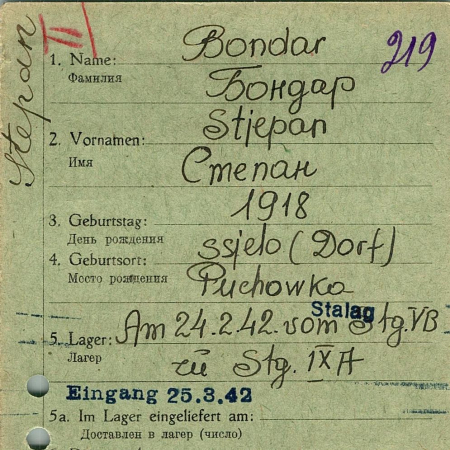 Stepan
II
219
1. Name: Bondar
Фамилия
Бондар
2. Vornamen: Stjepan
Имя
Степан
3. Geburtstag: 1918
День рождения
4. Geburtsort: ssjelo (Dorf)
Место рождения
Puchowka
Stalag
5. Lager: Am 24.2.42. vom Stg. VB
Лагер
zu Stg. IXA
Eingang 25.3.42
5a. Im Lager eingeliefert am:
Доставлен в лагер (число)